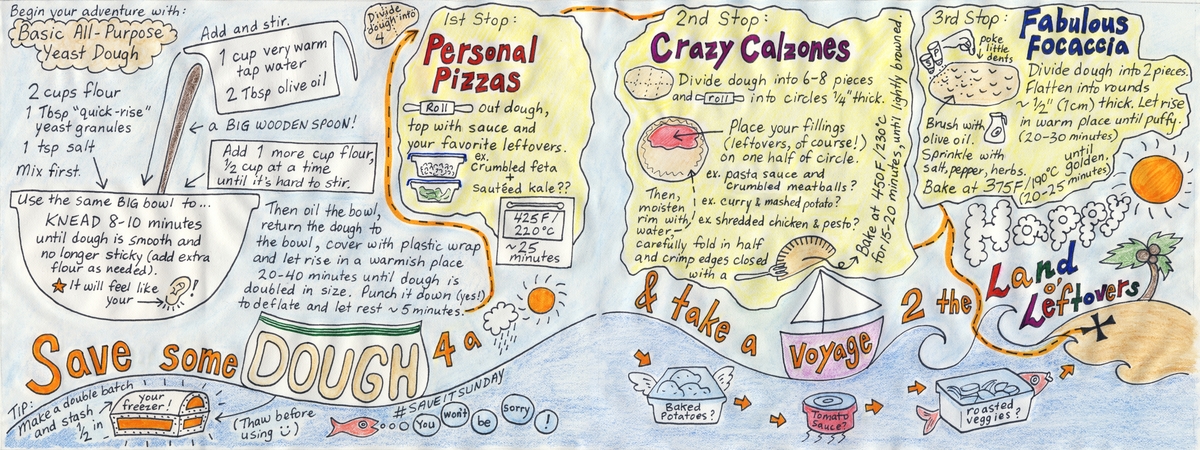 Begin your adventure with:
Basic All-Purpose
Yeast Dough
2 cups flour
1 Tbsp "quick-rise"
yeast granules
1 tsp salt
Mix first.
Add and stir.
1 cup very warm
tap water
2 Tbsp olive oil
← a BIG WOODEN SPOON!
Add 1 more cup flour,
1/2 cup at a time
until it's hard to stir.
Use the same BIG bowl to...
KNEAD 8-10 minutes
until dough is smooth and
no longer sticky (add extra
flour as needed).
★ It will feel like
your → !
Then oil the bowl,
return the dough to
the bowl, cover with plastic wrap
and let rise in a warmish place
20-40 minutes until dough is
doubled in size. Punch it down (yes!)
to deflate and let rest ~ 5 minutes.
Divide
dough into
4
1st Stop:
Personal
Pizzas
Roll out dough,
top with sauce and
your favorite leftovers.
ex.
crumbled feta
+
sautéed kale??
425F/
220°C
~25
minutes
2nd Stop:
Crazy Calzones
Divide dough into 6-8 pieces
and roll into circles 1/4" thick.
Place your fillings
(leftovers, of course!)
on one half of circle.
ex. pasta sauce and
crumbled meatballs?
ex. curry & mashed potato?
ex. shredded chicken & pesto?
Then,
moisten
rim with
water,
carefully fold in half
and crimp edges closed
with a
→ Bake at 450F/230°C
for 15-20 minutes, until lightly browned.
3rd Stop:
Fabulous
Focaccia
poke
little
dents
Divide dough into 2 pieces.
Flatten into rounds
~ 1/2" (1cm) thick. Let rise
in warm place until puffy.
(20-30 minutes)
Brush with
olive oil.
Sprinkle with
salt, pepper, herbs.
Bake at 375F/190°C until golden.
(20-25 minutes)
Save some DOUGH 4 a
& take a voyage 2 the
Happy
Land
o'
Leftovers
TIP:
Make a double batch
and stash
1/2 in
your
freezer!
(Thaw before
using ☺)
#SAVEITSUNDAY
You won't be sorry !
Baked
Potatoes?
Tomato
Sauce?
roasted
veggies?